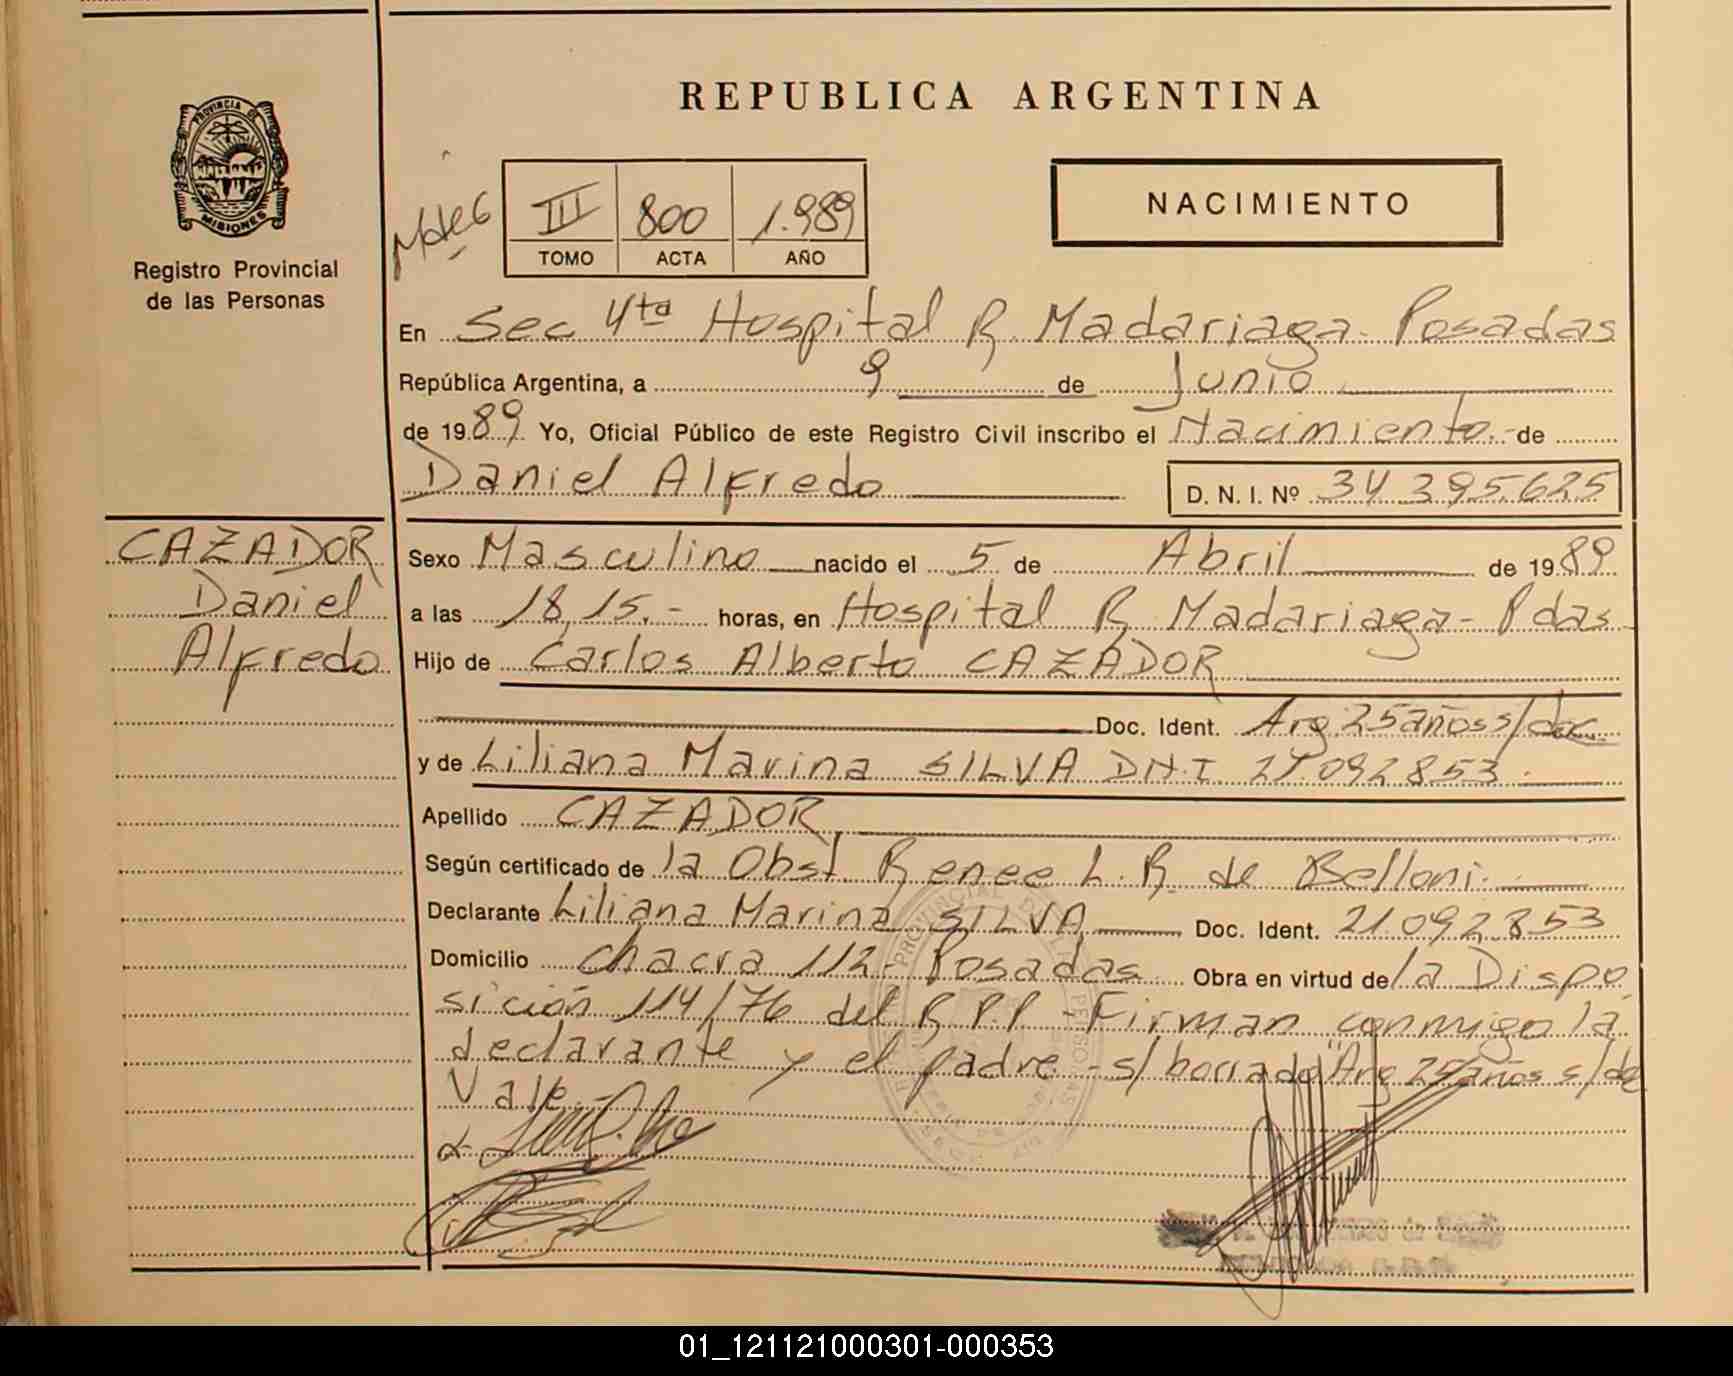 REPUBLICA ARGENTINA
PROVINCIA DE MISIONES
Registro Provincial
de las Personas
III 800 1.989
TOMO ACTA AÑO
NACIMIENTO
En Sec 4ta Hospital R. Madariaga - Posadas
República Argentina, a 9 de Junio
de 1989 Yo, Oficial Público de este Registro Civil inscribo el Nacimiento.- de
Daniel Alfredo D. N. I. Nº 34 395.625
CAZADOR
Daniel
Alfredo
Sexo Masculino nacido el 5 de Abril de 1989
a las 18,15.- horas, en Hospital R Madariaga - Pdas
Hijo de Carlos Alberto CAZADOR
Doc. Ident. Arg 25 años s/doc
y de Liliana Marina SILVA DN.I 21 092853.
Apellido CAZADOR
Según certificado de la Obst Renee L. R. de Belloni.
Declarante Liliana Marina SILVA Doc. Ident. 21.092.853
Domicilio Chacra 112- Posadas Obra en virtud de la Dispo
sición 114/76 del R.P.P - Firman conmigo la
declarante y el padre - s/borrado "Arg 25 años s/doc
Vale.-
01_121121000301-000353